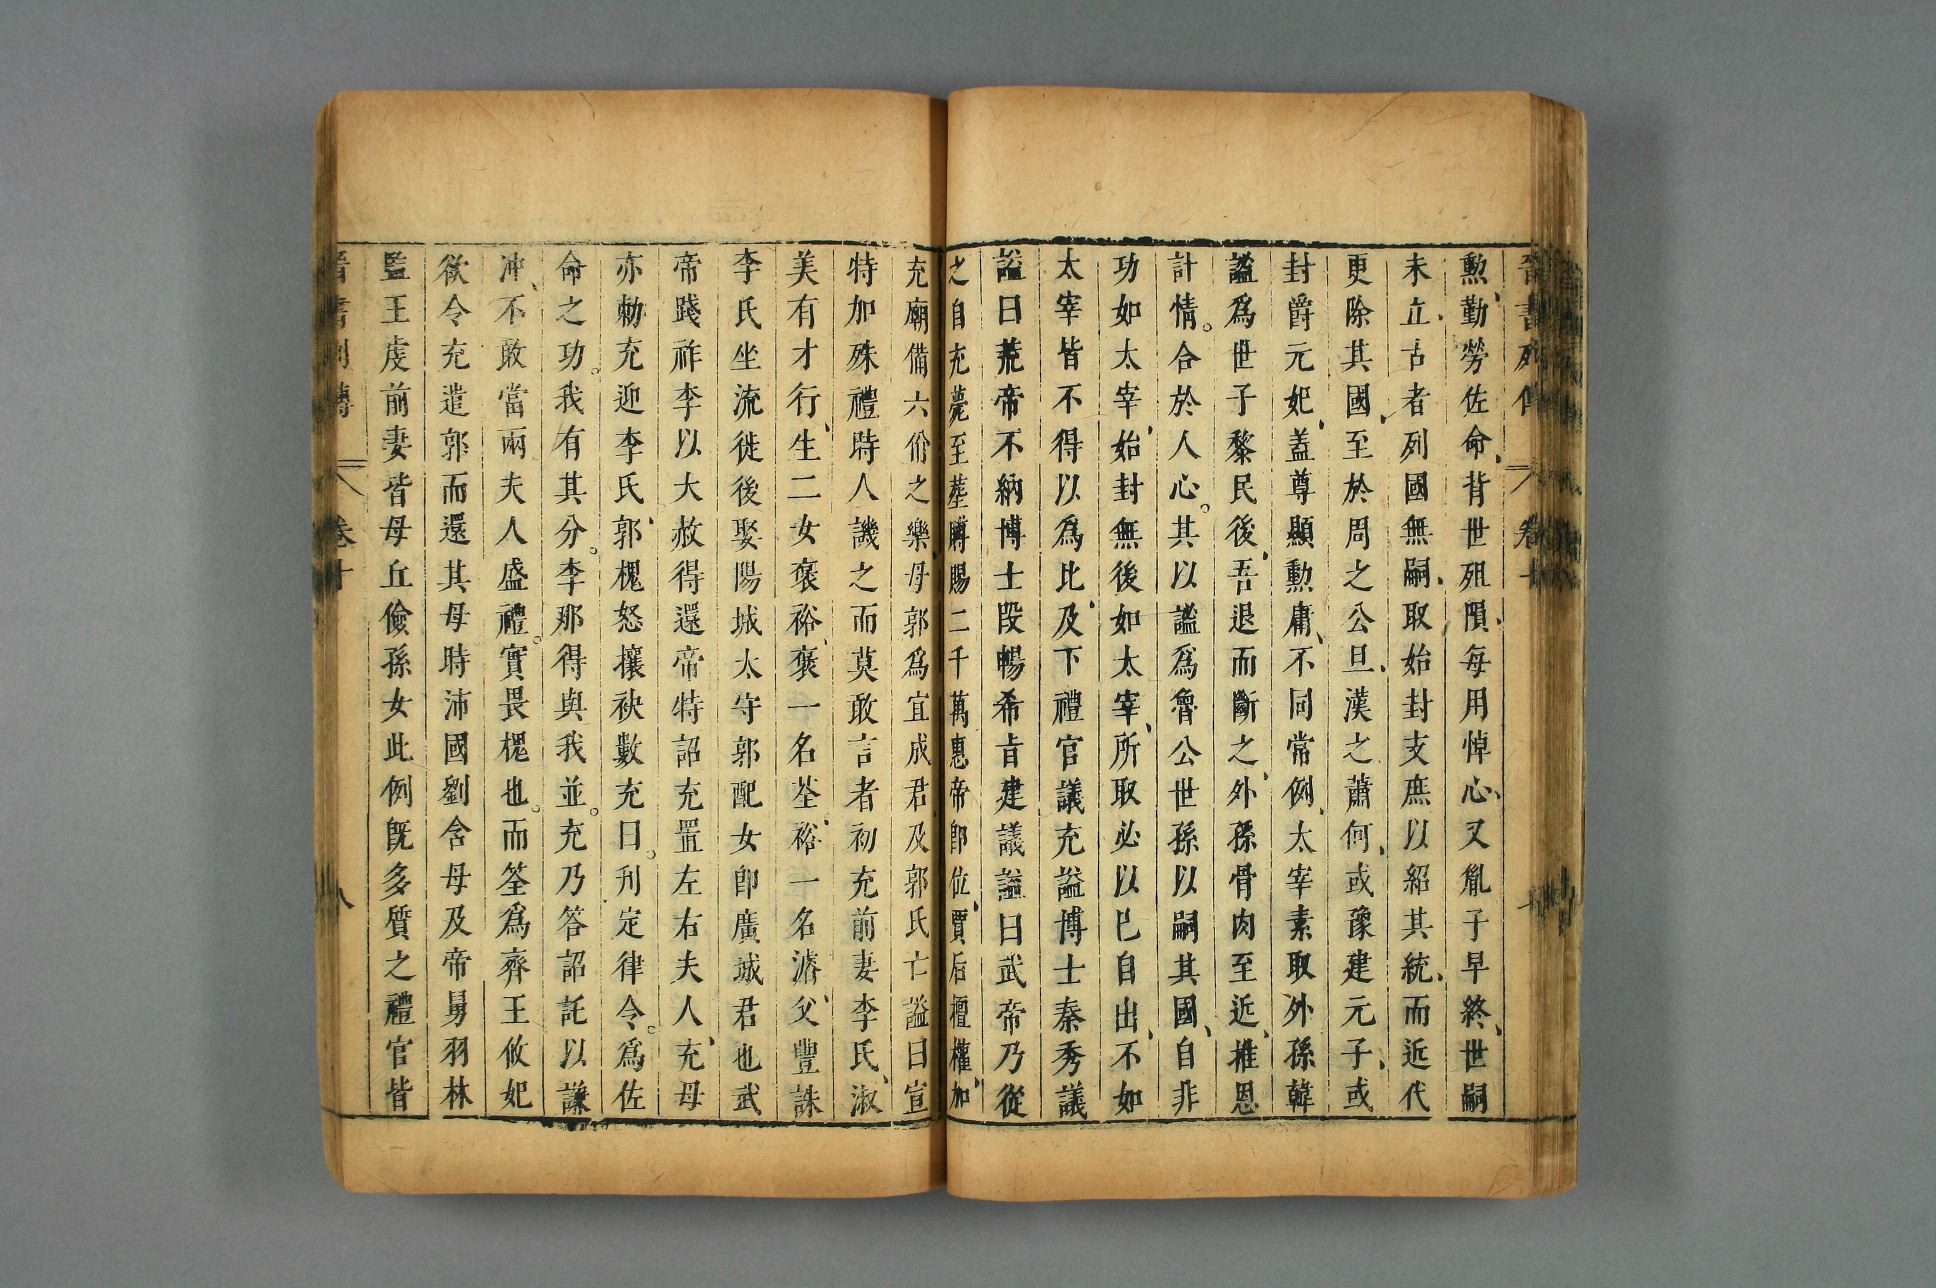 晉書列傳 卷十
勲、勤勞佐命、背世殂隕、每用悼心、又胤子早終、世嗣
未立、古者列國無嗣、取始封支庶以紹其統、而近代
更除其國、至於周之公旦、漢之蕭何、或豫建元子、或
封爵元妃、蓋尊顯勲庸、不同常例、太宰素取外孫韓
謐爲世子黎民後、吾退而斷之、外孫骨肉至近、推恩
計情。合於人心。其以謐爲魯公世孫以嗣其國、自非
功如太宰、始封無後如太宰、所取必以已自出、不如
太宰皆不得以爲比、及下禮官議充謚博士秦秀議
謚曰荒帝不納博士段暢希旨建議謚曰武帝乃從
之自充薨至葬賻賜二千萬惠帝卽位、賈后擅權、加
充廟備六佾之樂、母郭爲宜成君及郭氏亡謚曰宣
特加殊禮時人譏之而莫敢言者初充前妻李氏、淑
美有才行、生二女襃裕、襃一名荃、裕一名濬、父豐誅
李氏坐流徙後娶陽城太守郭配女卽廣城君也武
帝踐祚李以大赦得還帝特詔充置左右夫人、充母
亦勅充迎李氏、郭槐怒攘袂數充曰。刋定律令。爲佐
命之功。我有其分。李那得與我並。充乃答詔託以謙
沖、不敢當兩夫人盛禮。實畏槐也。而筌爲齊王攸妃
欲令充遣郭而還其母時沛國劉含母及帝舅羽林
監王虔前妻皆母丘儉孫女此例旣多質之禮官皆
晉書列傳 卷十 八